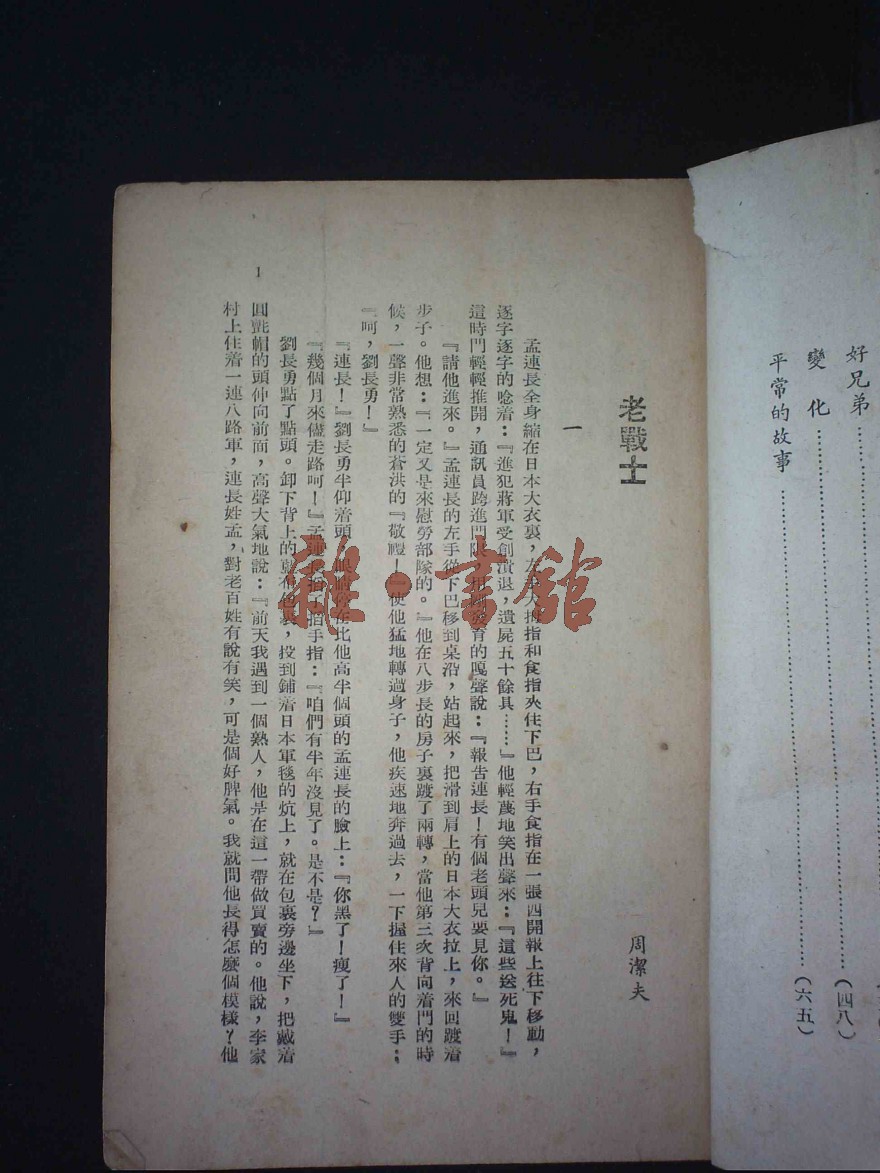 好兄弟…………(四八)
變化…………(六五)
平常的故事…………
老戰士
周潔夫
一
孟連長全身縮在日本大衣裏,左手大拇指和食指夾住下巴,右手食指在一張四開報上往下移動,
逐字逐字的唸着:『進犯蔣軍受創潰退,遺屍五十餘具……』他輕蔑地笑出聲來:『這些送死鬼!』
這時門輕輕推開,通訊員跨進門限,用剛發育的嘎聲說:『報告連長!有個老頭兒要見你。』
『請他進來。』孟連長的左手從下巴移到桌沿,站起來,把滑到肩上的日本大衣拉上,來回踱着
步子。他想:『一定又是來慰勞部隊的。』他在八步長的房子裏踱了兩轉,當他第三次背向着門的時
候,一聲非常熟悉的蒼洪的『敬禮!』使他猛地轉過身子,他疾速地奔過去,一下握住來人的雙手:
『呵,劉長勇!』
『連長!』劉長勇半仰着頭,眼睛停在比他高半個頭的孟連長的臉上:『你黑了!瘦了!』
『幾個月來儘走路呵!』孟連長掐了掐手指:『咱們有半年沒見了。是不是?』
劉長勇點了點頭。卸下背上的藍布包裹,投到鋪着日本軍毯的炕上,就在包裹旁邊坐下,把戴着
圓氈帽的頭伸向前面,高聲大氣地說:『前天我遇到一個熟人,他是在這一帶做買賣的。他說,李家
村上住着一連八路軍,連長姓孟,對老百姓有說有笑,可是個好脾氣。我就問他長得怎麼個模樣?他
1
雜·書館